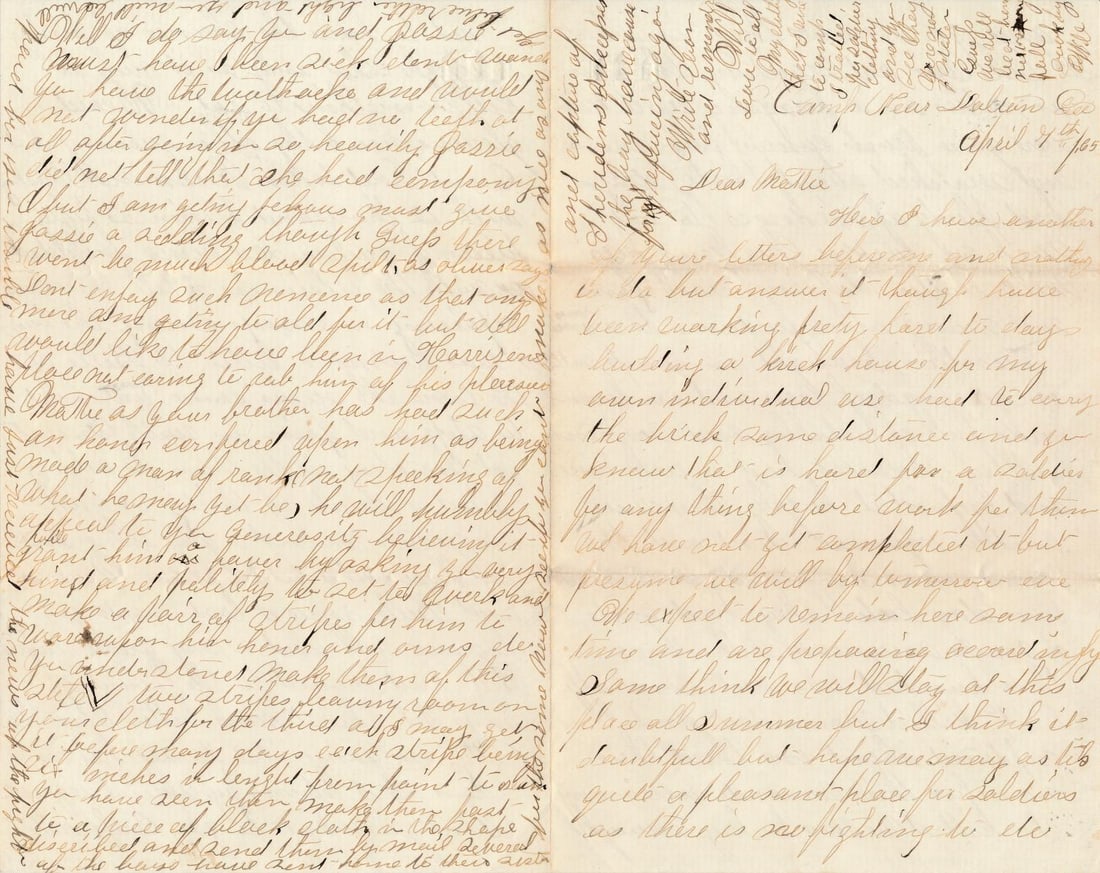 Camp Near Dalton Ga
April 7th /65
Dear Mattie
Here I have another
of youre letters before me and nothing
to do but answer it though have
been working prety hard to days
building a brick house for my
own individual use had to carry
the brick some distance and you
know that is hard for a soldier
for any thing before work for them
we have not yet completed it but
presume we will by tomorrow eve
We expect to remain here some
time and are prepairing accordingly
Some think we will stay at this
place all summer but I think it
doubtfull but hope we may as tis
quite a pleasant place for soldiers
as there is no fighting to do
Well I do say you and Jassie
must have been sick
you have the toothache and would
not wonder if you had no teeth at
all after so heavily Jassie
did not tell that she had company
O but I am geting jealous must give
Jassie a scolding though Guess there
wont be much blood spilt as oliver says
Dont enjoy such nonsense as that any
more am geting to old for it but still
would like to have been in Harrisons
place not caring to rob him of his pleasure
Mattie as your brother has had such
an honor confered upon him as being
made a man of rank (not speaking of
what he may yet be) he will humbly
appeal to your generosity believing it
grant him a favor by asking you very
kind and politely to set to work and
make a pair of stripes for him to
ware upon his honer and arms do
you understand make them of this
style two stripes leaving room on
your cloth for the third as I may get
it before many days each stripe being
six inches in lenght from point to
you have seen them make them fast
to a piece of black cloth in the shape
discribed and send them by mail several
of the boys have sent home to their
for the some now send you can make as nice as any
have just received the news of the fight
and capture of
Sheridans
they have cum
rejoicing again
Write soon
and remember
Will
Love to all